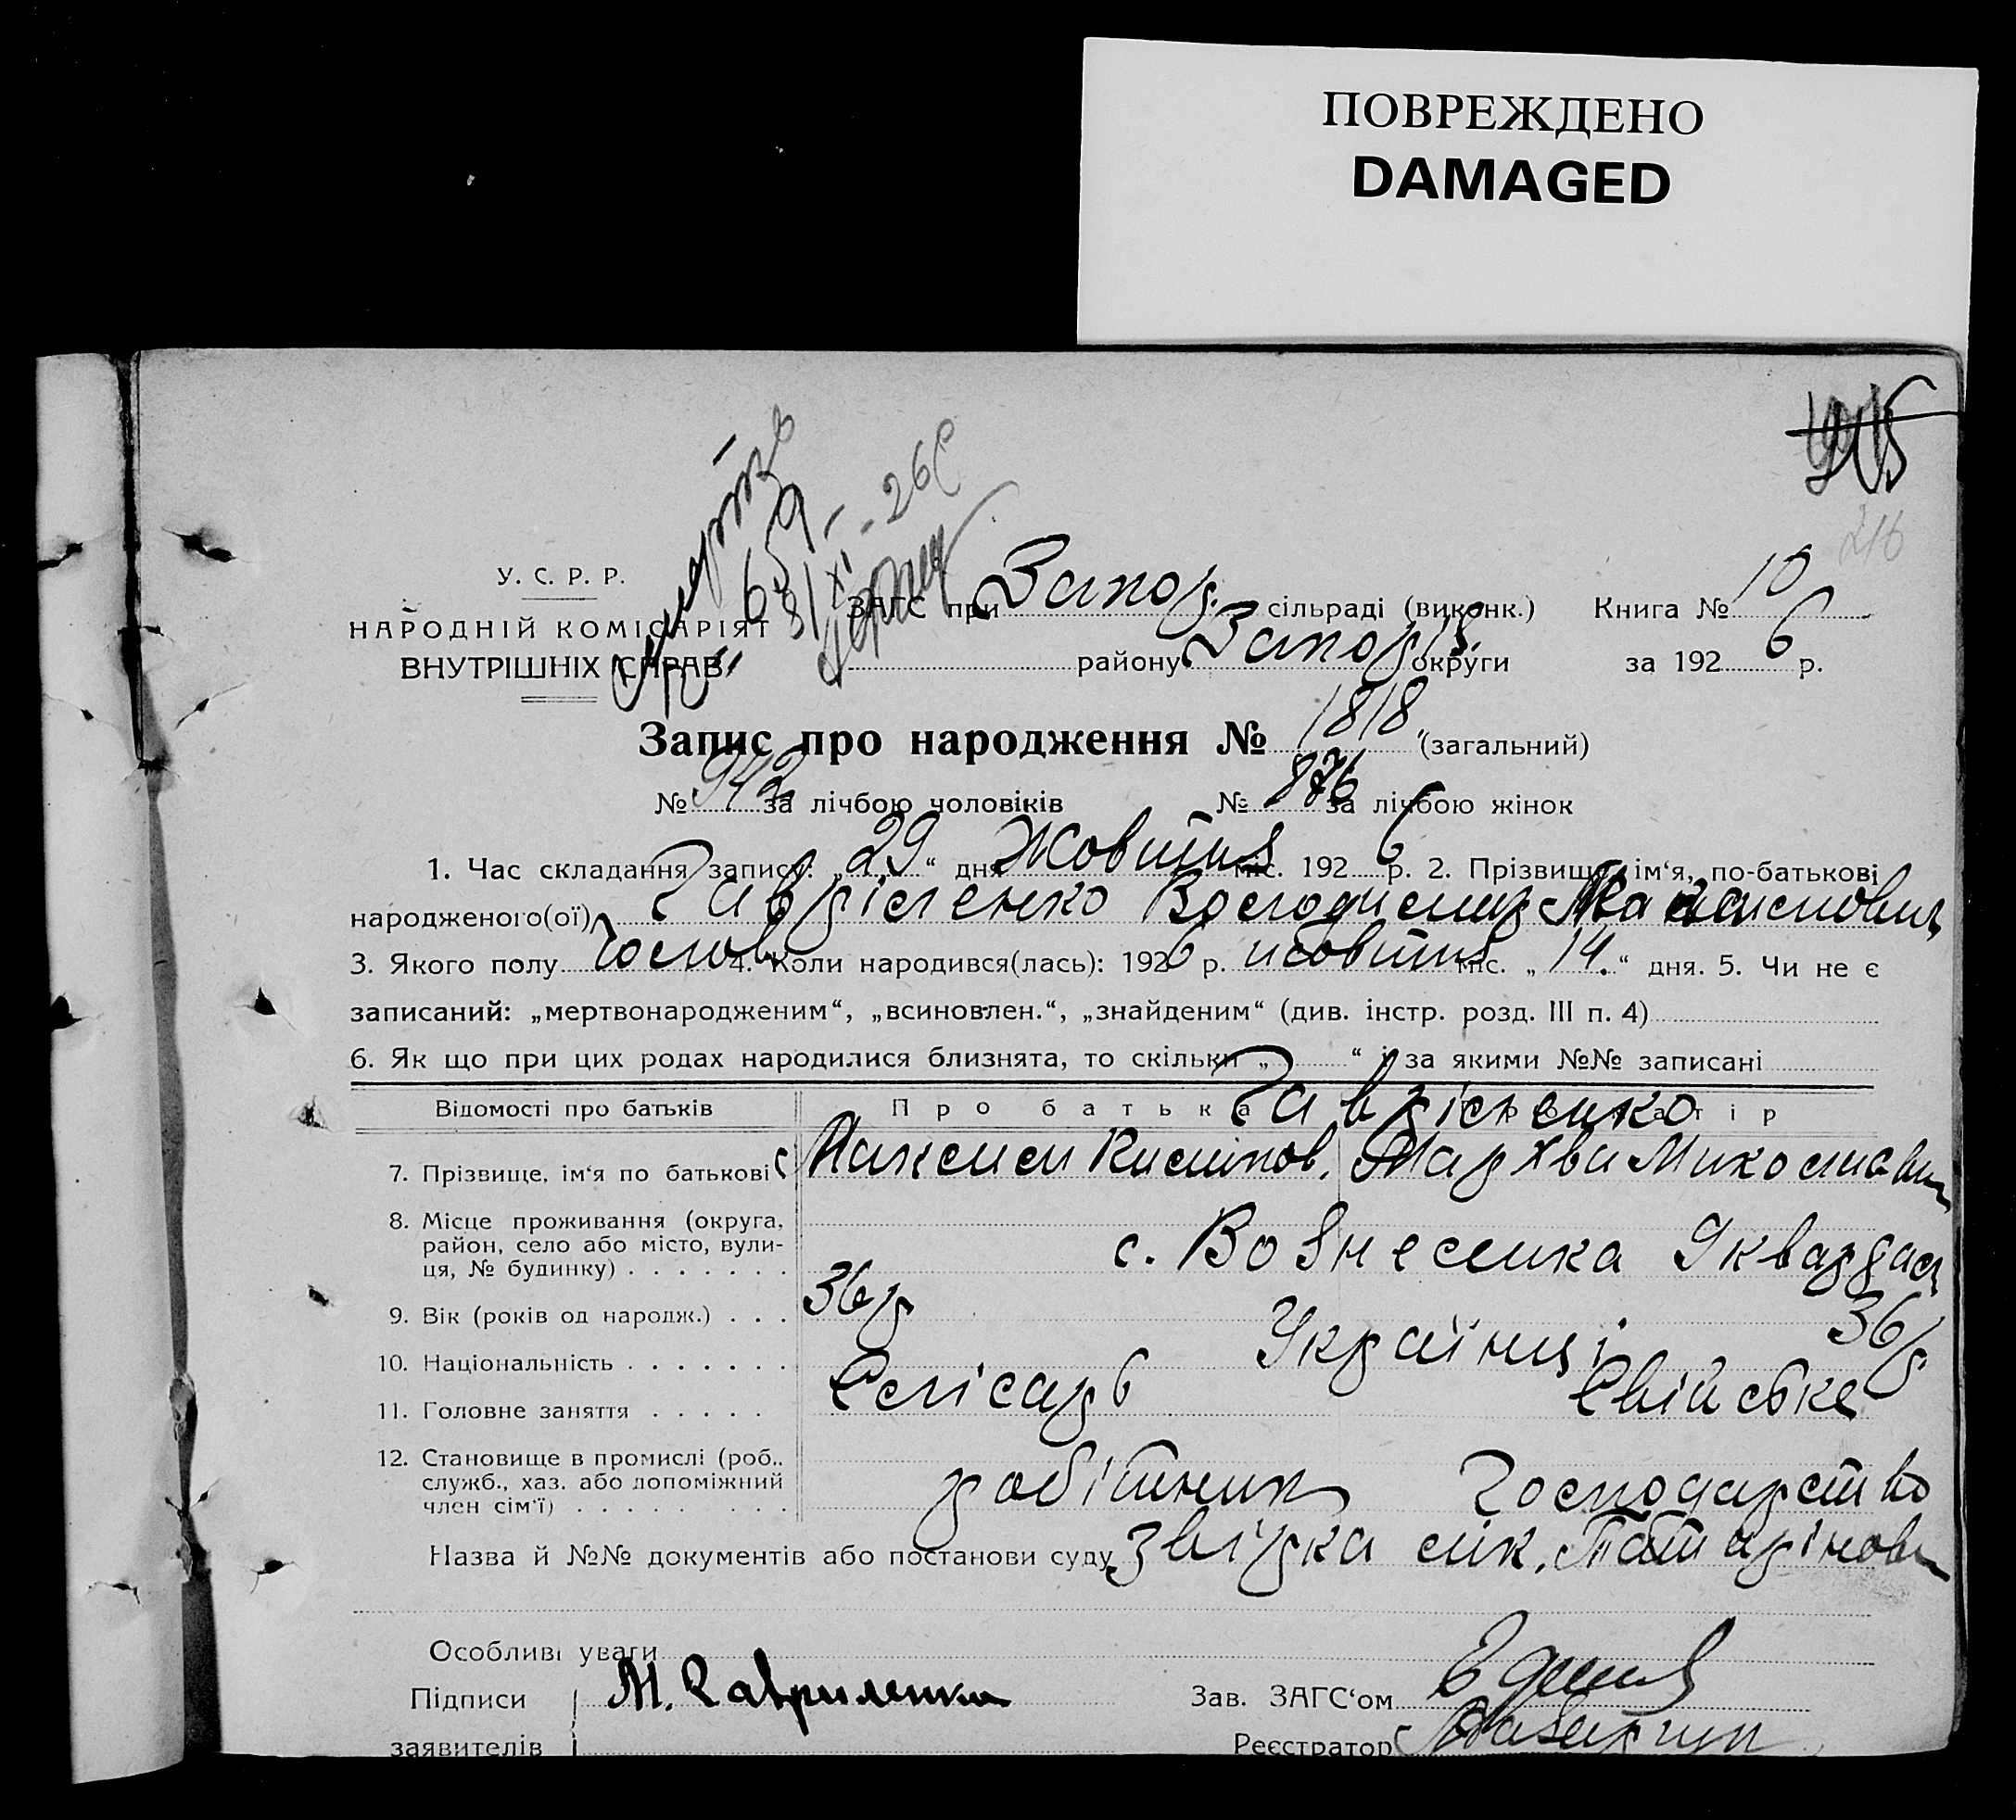 ПОВРЕЖДЕНО
DAMAGED
216
У. С. Р. Р.
НАРОДНІЙ КОМІСАРІЯТ
ВНУТРІШНІХ СПРАВ
659
ЗАГС при Запор. сільраді (виконк.) Книга № 10
району Запоріз. округи за 1926 р.
Запис про народження № 1818 (загальний)
№ 942 за лічбою чоловіків № 876 за лічбою жінок
1. Час складання запису: „29“ дня Жовтня міс. 1926 р. 2. Прізвище, ім‘я, по-батькові
народженого(ої) Гавріленко Володимир Максимович
3. Якого полу чолов 4. Коли народився(лась): 1926 р. жовтня міс. „14.“ дня. 5. Чи не є
записаний: „мертвонародженим“, „всиновлен.“, „знайденим“ (див. інстр. розд. III п. 4)
6. Як що при цих родах народилися близнята, то скільки „ “ і за якими №№ записані
Відомості про батьків Про батька Гавріленко Про матір
7. Прізвище, ім‘я по батькові Максим Климов. Мархва Миколаевн
8. Місце проживання (округа,
район, село або місто, вули-
ця, № будинку) . . . . . . . с. Вознесенка
9. Вік (років од народж.) . . . 36 р 36 р
10. Національність . . . . . . . Українці
11. Головне заняття . . . . . Слісарь Свійське
12. Становище в промислі (роб..
служб., хаз. або допоміжний
член сім‘ї) . . . . . . . . . робітник Господарство
Назва й №№ документів або постанови суду Звідка лік. Татарінова
Особливі уваги
Підписи М. Гавриленко Зав. ЗАГС‘ом
заявителів Реєстратор